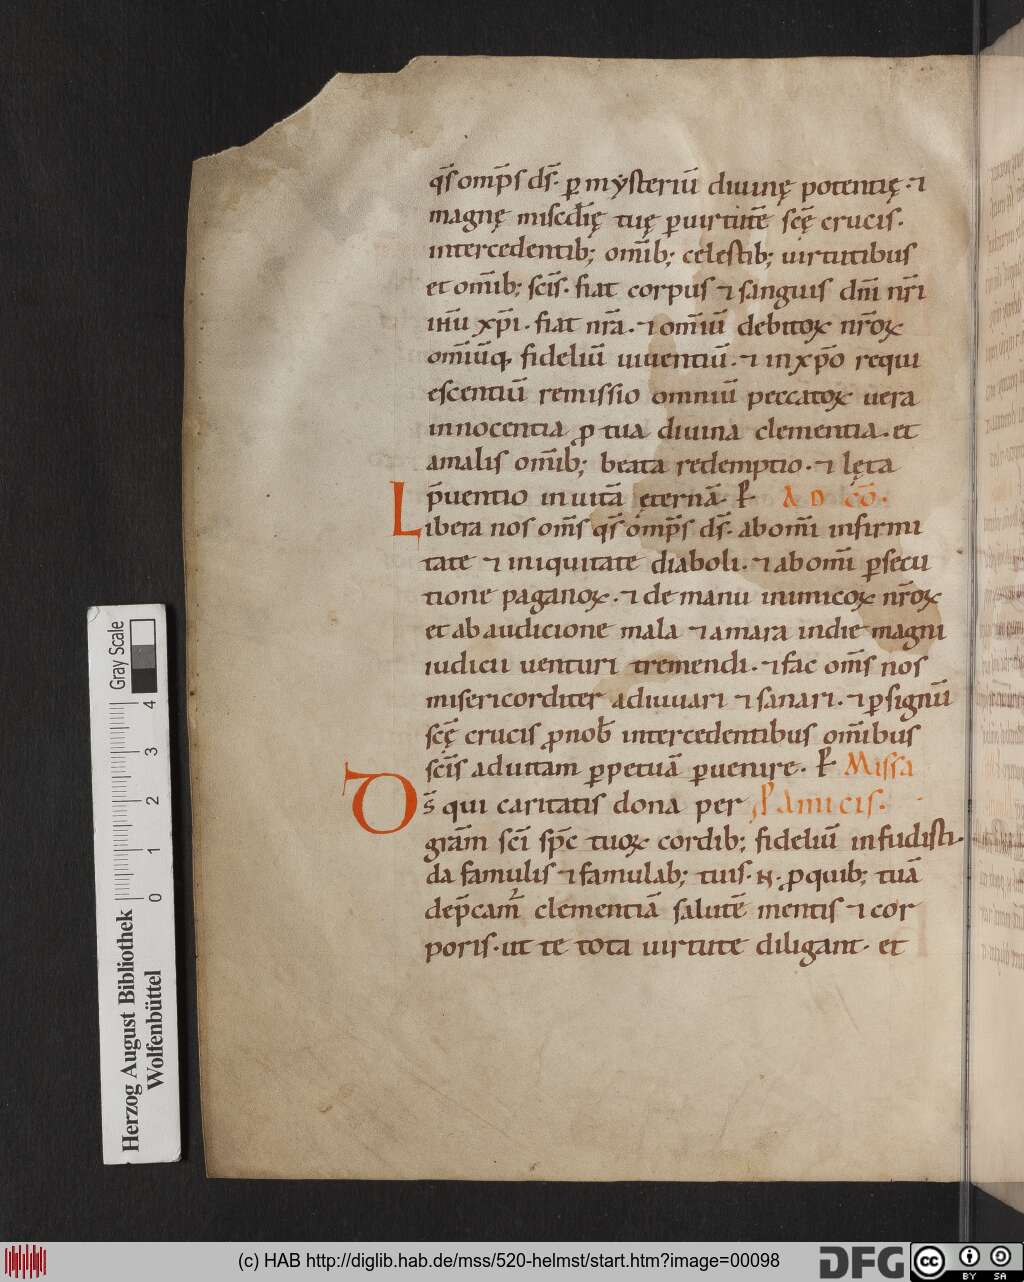 q̅s̅ omp̅s d̅s̅. ꝑ mẏsteriu̅ diuinę potentię. ⁊
magnę misc̅dię tuę ꝑuirtute̅ sc̅ę crucis.
intercedentib; om̅ib; celestib; uirtutibus
et om̅ib; sc̅is. fiat corpus ⁊ sanguis dn̅i nr̅i
ih̅u xp̅i. fiat nr̅a. ⁊ om̅iu̅ debitoꝝ nr̅oꝝ
om̅iu̅q, fideliu̅ uiuentiu̅. ⁊ inxp̅o requi
escentiu̅ remissio omniu̅ peccatoꝝ uera
innocentia ꝓ tua diuina clementia. et
amalis om̅ib; beata redemptio. ⁊ lęta
p̅uentio inuita̅ ęterna̅. ꝑ AD CO̅.
Libera nos om̅s q̅s̅ omp̅s d̅s̅. abom̅i infirmi
tate ⁊ iniquitate diaboli. ⁊ abom̅i ꝑsecu
tione paganoꝝ. ⁊ de manu inimicoꝝ nr̅oꝝ
et ab audicione mala ⁊ amara indie magni
iudicii uenturi tremendi. ⁊ fac om̅s nos
misericorditer adiuuari ⁊ sanari. ⁊ ꝑsignu̅
sc̅ę crucis ꝓnob̅ intercedentibus om̅ibus
sc̅is aduitam ꝑpetua̅ ꝑuenire. ꝑ Missa
Ds̅ qui caritatis dona per ꝓ Amicis.
gr̅am sc̅i sp̅c tuoꝝ cordib; fideliu̅ infudisti.
da famulis ⁊ famulab; tuis. N. ꝓquib; tua̅
dep̅cam̅ clementia̅ salute̅ mentis ⁊ cor
poris. ut te tota uirtute diligant. et
Gray Scale
4 3 2 1 0
Herzog August Bibliothek
Wolfenbüttel
(c) HAB http://diglib.hab.de/mss/520-helmst/start.htm?image=00098
DFG
cc BY SA